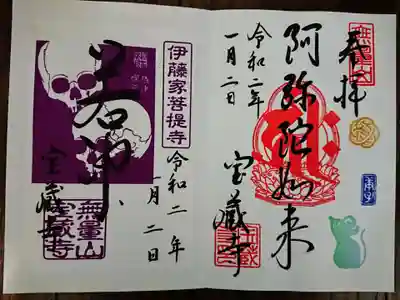 奉拝
阿弥陀如来
令和二年
一月二日
宝蔵寺
伊藤家菩提寺
令和二年
一月二日
若冲
宝蔵寺
無量山
宝蔵寺